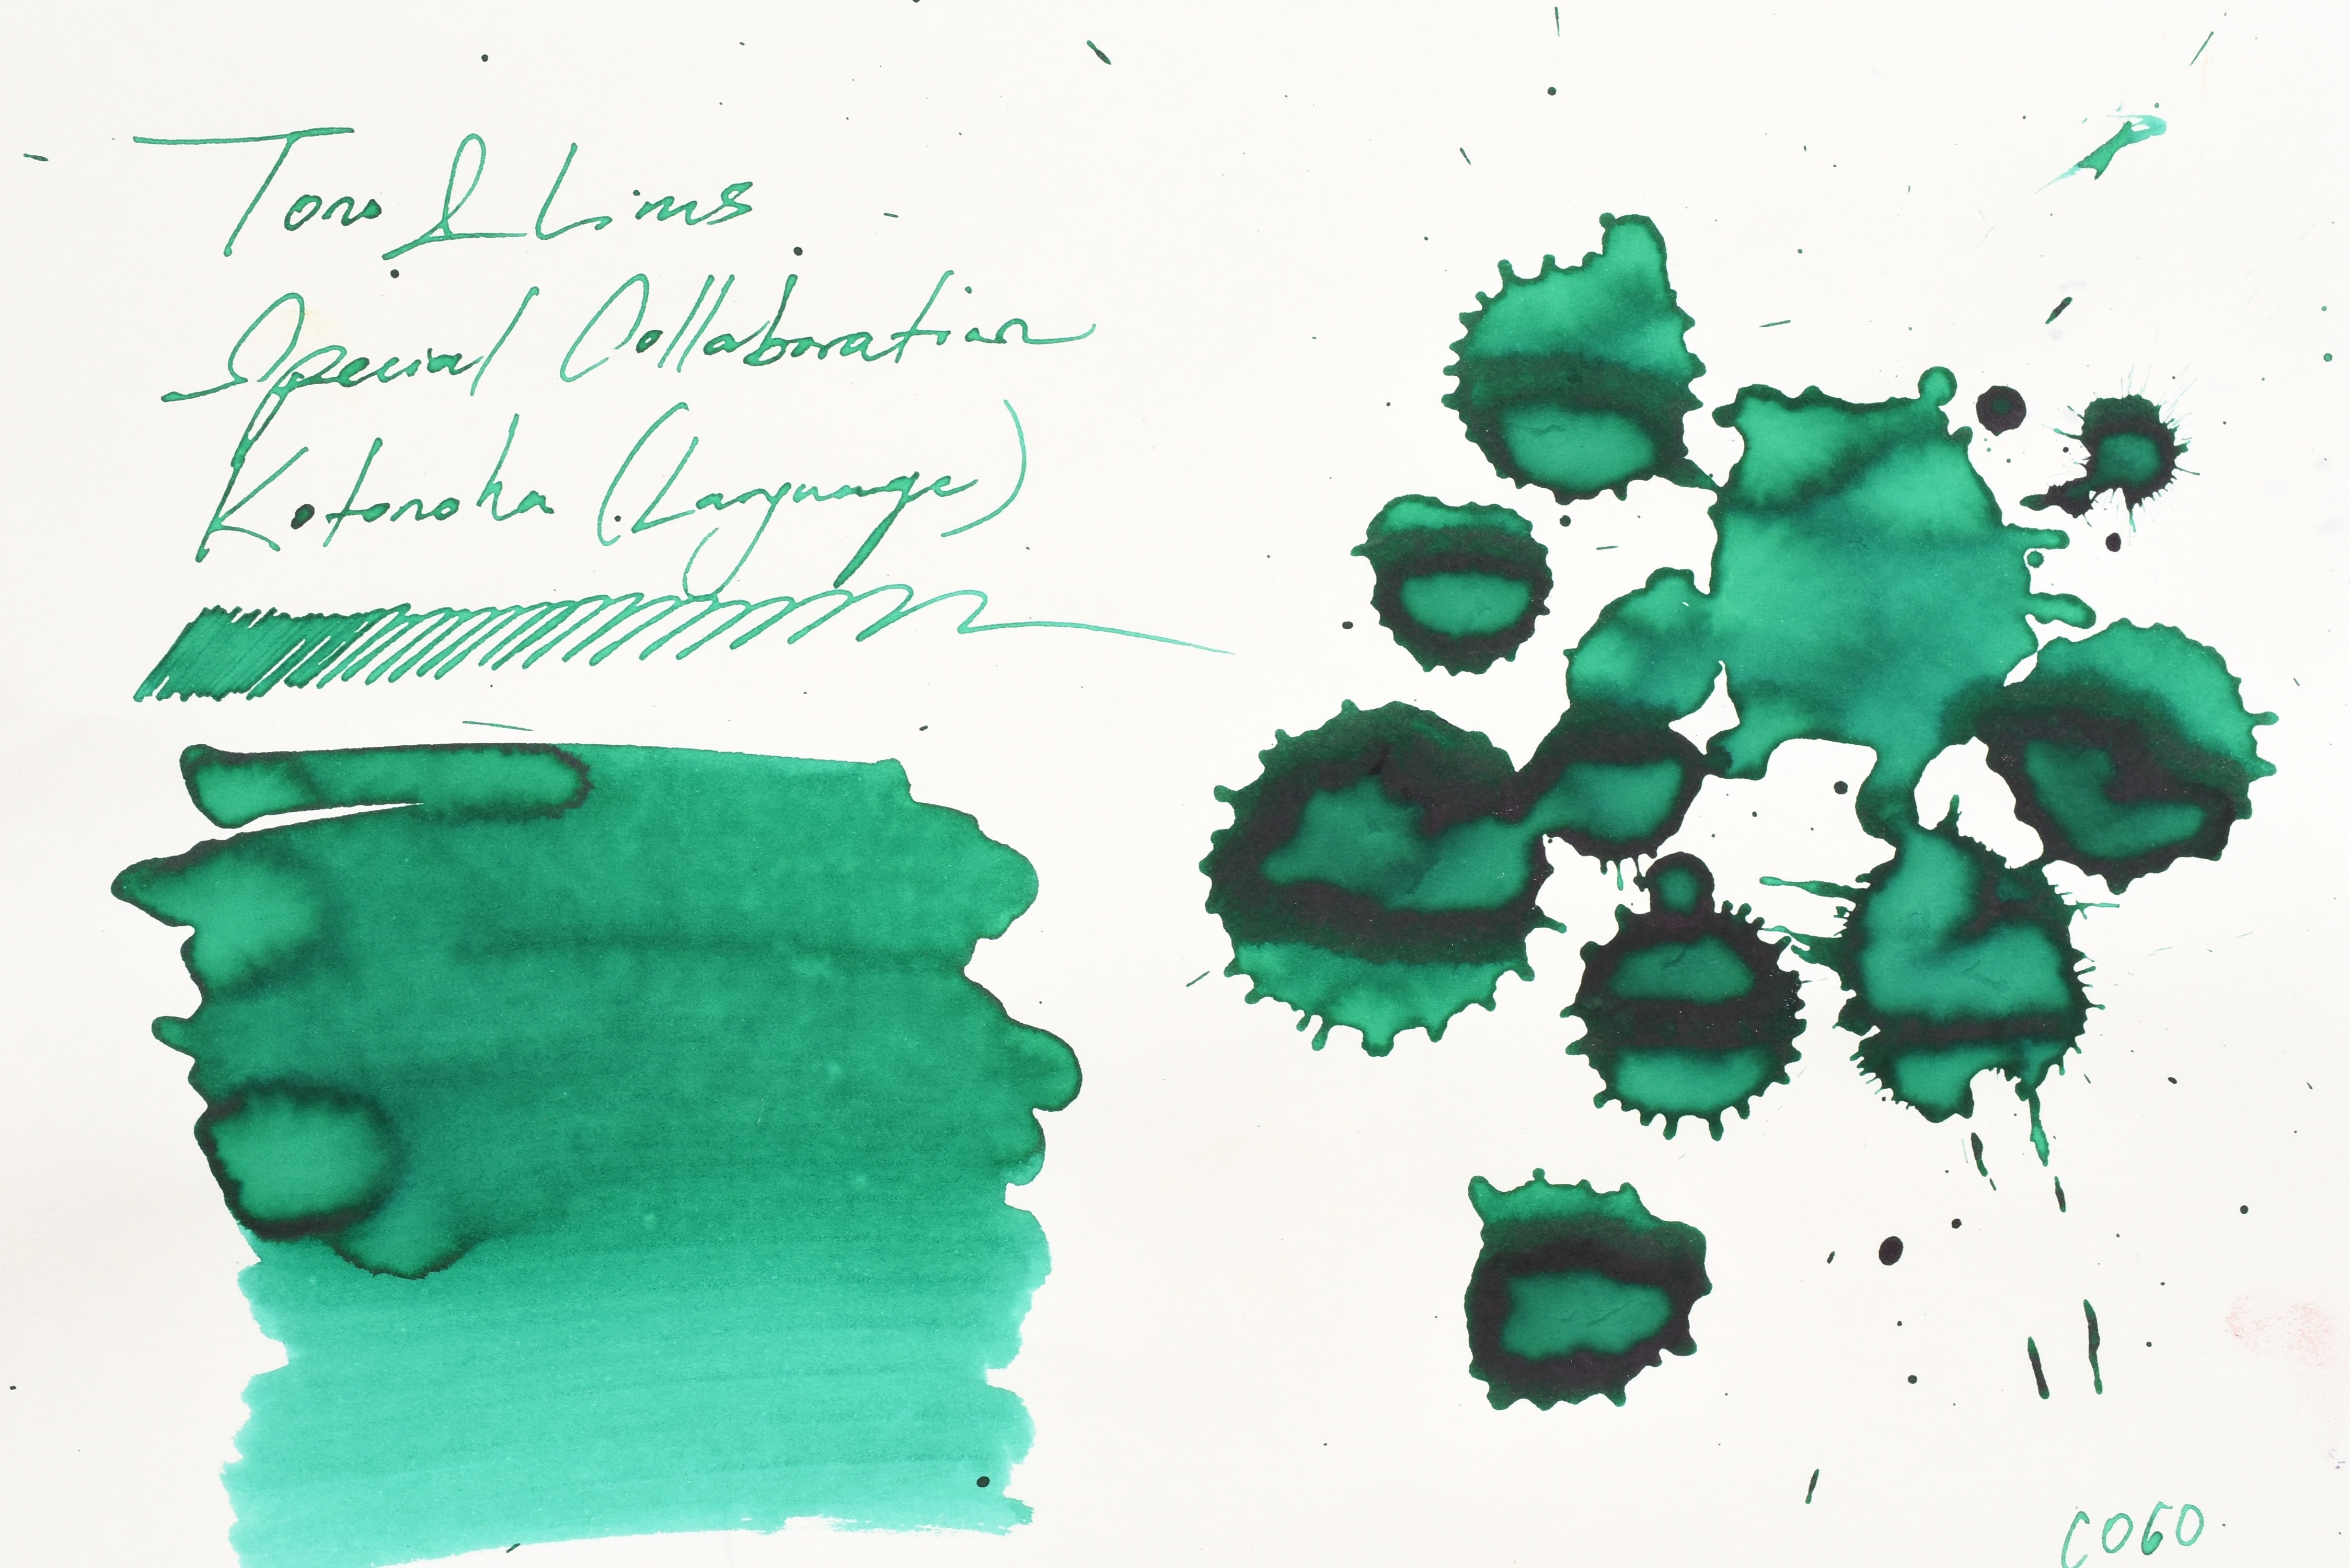 Tono & Lims
Special Collaboration
Kotonoha (Language)
C060